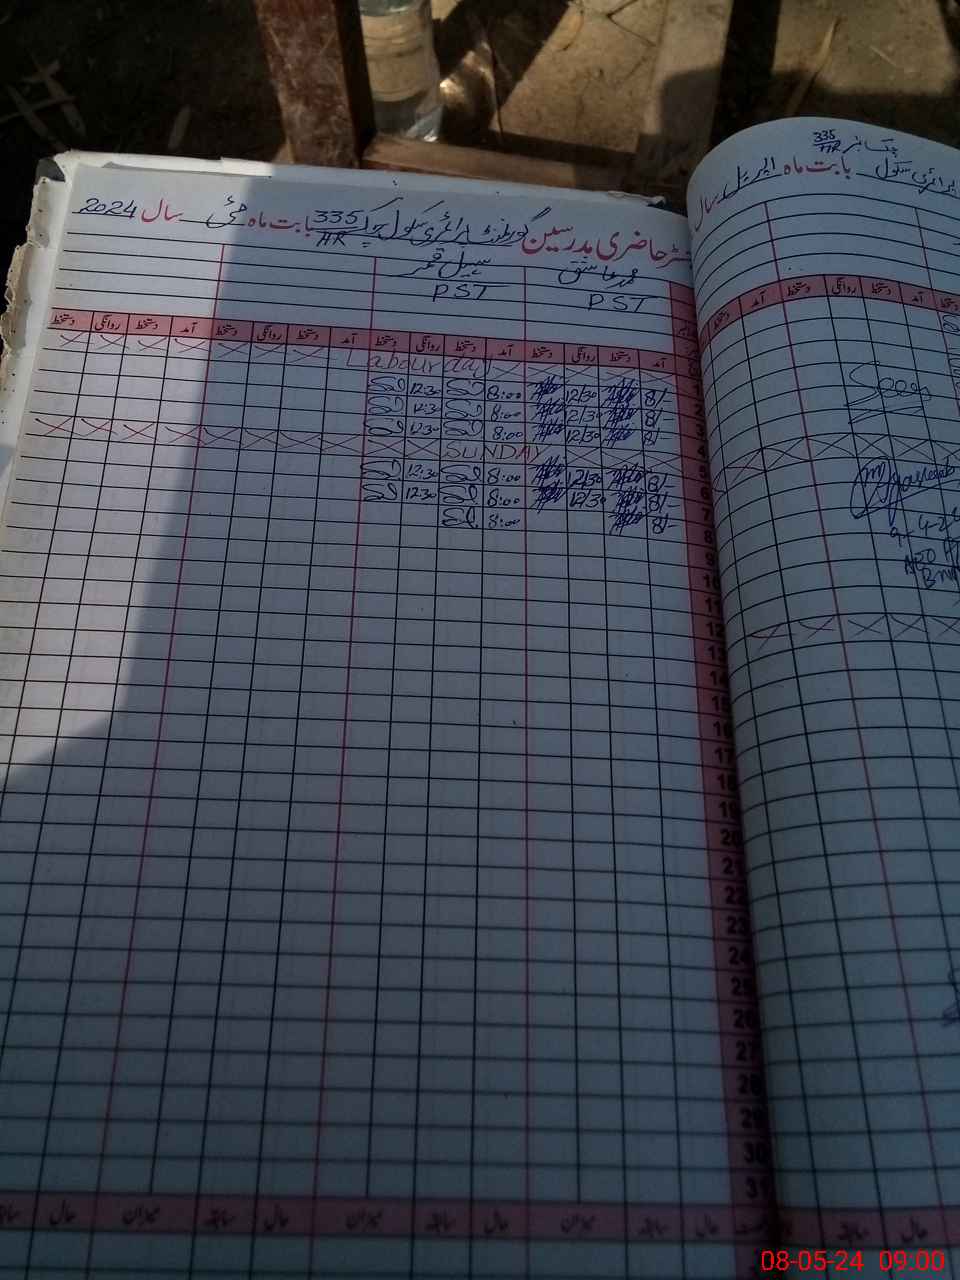 رجسٹر حاضری مدرسین گورنمنٹ پرائمری سکول چک 335/HR بابت ماہ مئی سال 2024
محمد عاشق سہیل قمر
PST PST
آمد دستخط روانگی دستخط آمد دستخط روانگی دستخط آمد دستخط روانگی دستخط آمد دستخط روانگی دستخط
1 Labour day
2 8/- 12/30 8:00 12:30
3 8/- 12/30 8:00 12:30
4 8/- 12/30 8:00 12:30
5 SUNDAY
6 8/- 12/30 8:00 12:30
7 8/- 12/30 8:00 12:30
8 8/- 8:00
9
10
11
12
13
14
15
16
17
18
19
20
21
22
23
24
25
26
27
28
29
30
31
حال سابقہ میزان حال سابقہ میزان حال سابقہ میزان حال
پرائمری سکول چک نمبر 335/HR
بابت ماہ اپریل سال
دستخط آمد دستخط روانگی دستخط آمد دستخط
Seen
9-4-24
AEO
سابقہ حال
08-05-24 09:00